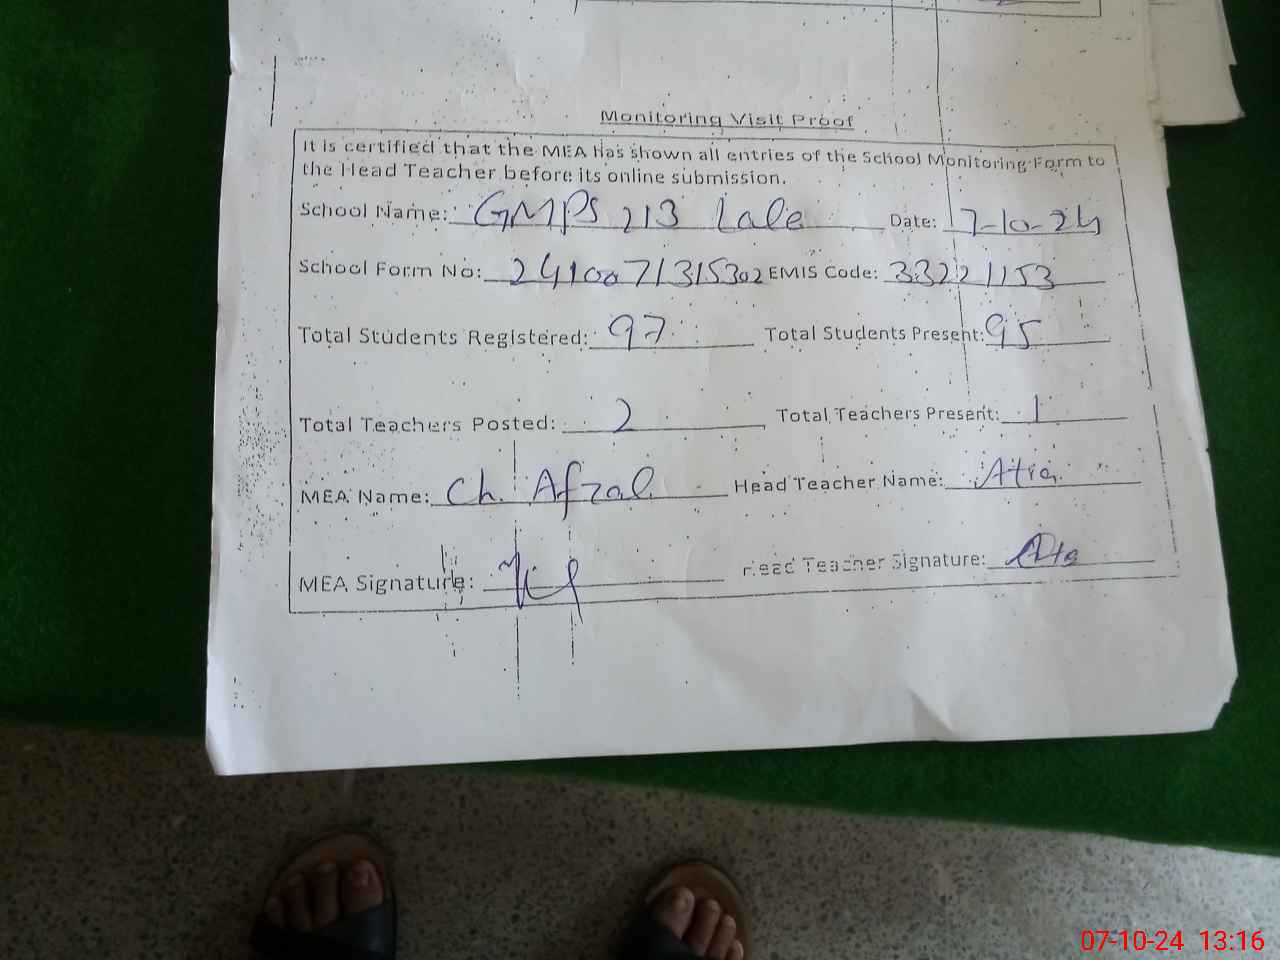 Monitoring Visit Proof
It is certified that the MEA has shown all entries of the School Monitoring Form to
the Head Teacher before its online submission.
School Name: GMPS 213 Lale Date: 7-10-24
School Form No: 2410071315302 EMIS Code: 33221153
Total Students Registered: 97 Total Students Present: 95
Total Teachers Posted: 2 Total Teachers Present: 1
MEA Name: Ch. Afzal Head Teacher Name: Atia
MEA Signature: Head Teacher Signature:
07-10-24 13:16